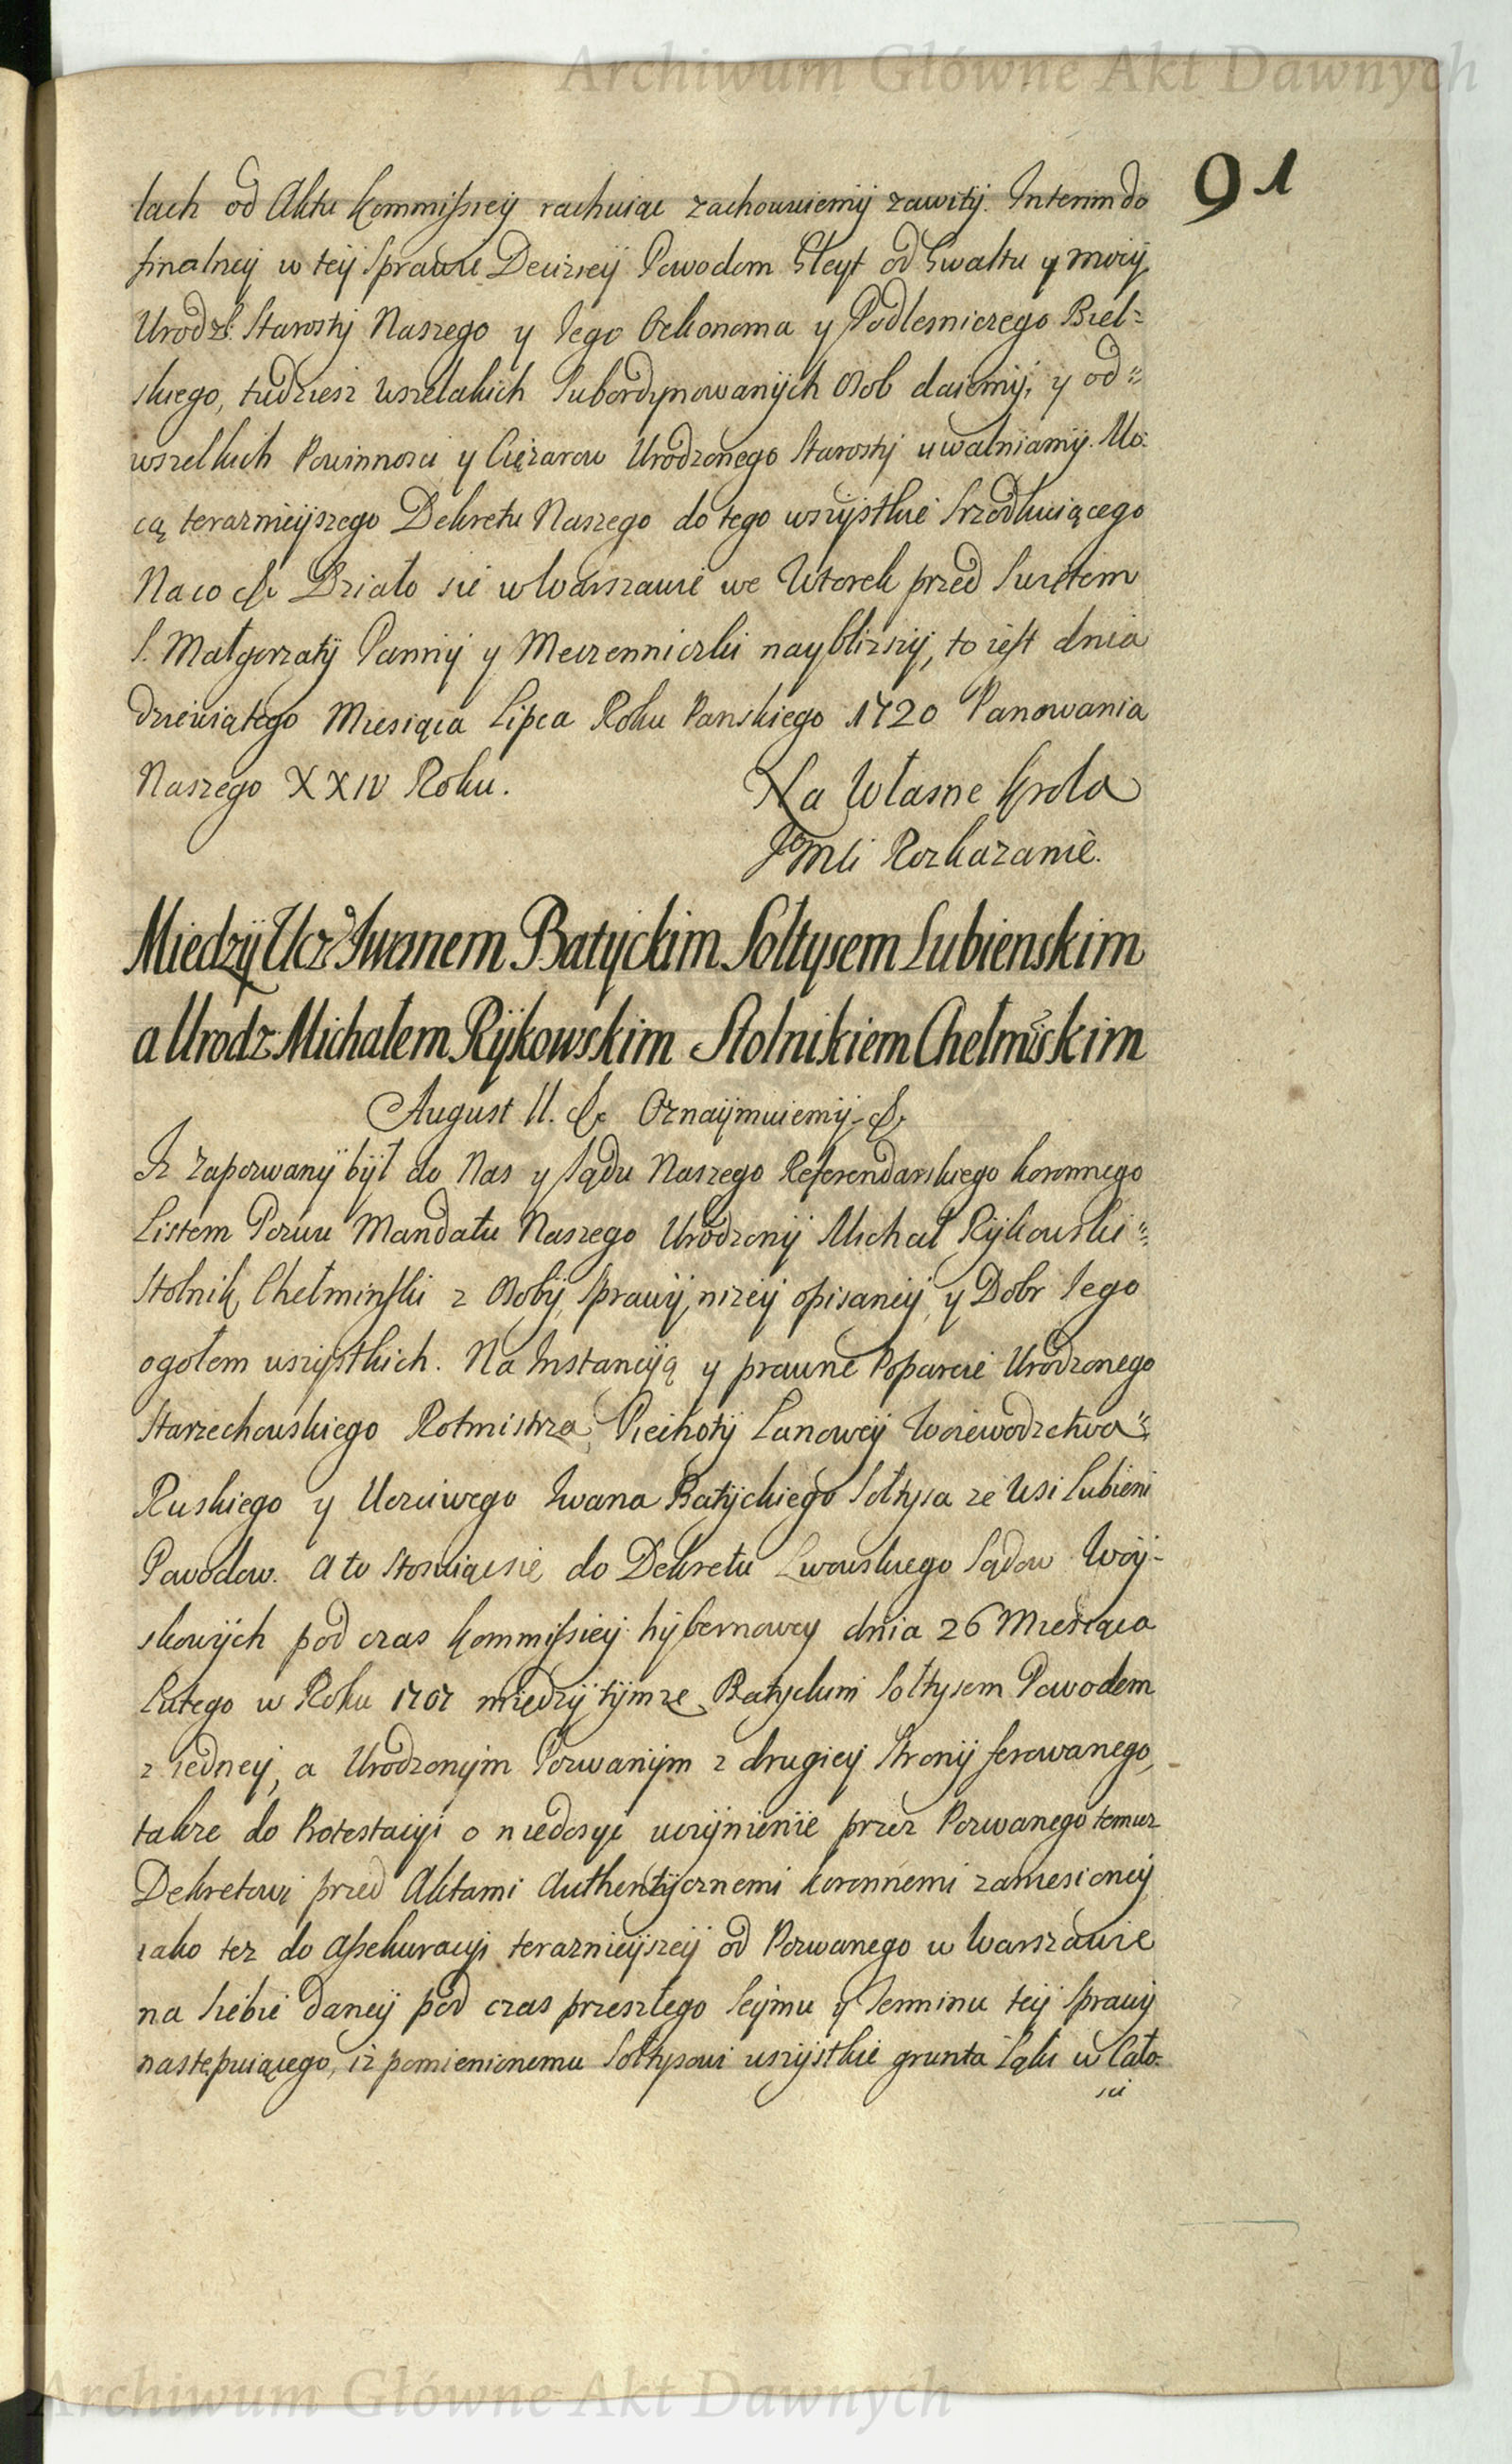 Archiwum Główne Akt Dawnych
91
tach od Aktu Kommissyey rachuiąc zachowuiemÿ zawitÿ. Interim do
finalneÿ w teÿ Sprawie Decizieÿ Powodom Gleyt od Gwałtu y mocÿ
Urodz: Starostÿ Naszego y Jego Oekonoma y Podlesniczego Biel=
skiego, tudziesz wszelakich Subordynowanÿch Osob daiemÿ, y od=
wszelkich Powinnosci y Ciężarow Urodzonego Starostÿ uwalniamÿ. Mo=
cą teraznieÿszego Dekretu Naszego do tego wszÿstkie srzodkuiącego
Na co &c Działo sie w Warszawie we Wtorek przed Swietem
S. Małgorzatÿ Pannÿ y Meczenniczki nayblizszÿ, to iest dnia
dziewiątego Miesiąca Lipca Roku Panskiego 1720 Panowania
Naszego XXIV Roku.
Na Własne Krola
JoMci Rozkazanie.
Miedzÿ Ucz Iwanem Batÿckim Sołtysem Lubienskim
a Urodz: Michałem Rÿkowskim Stolnikiem Chełmiskim
August II. &c Oznaÿmuiemÿ &c
Iz Zapozwanÿ bÿł do Nas y Sądu Naszego Referendarskiego Koronnego
Listem Pozwu Mandatu Naszego Urodzonÿ Michał Rÿkowski=
Stolnik Chełminski z Osobÿ, Sprawÿ, nizeÿ opisaneÿ, y Dobr Jego
ogołem wszÿstkich. Na Instancÿą y prawne Poparcie Urodzonego
Starzechowskiego Rotmistrza Piechotÿ Łanoweÿ Woiewodzctwa=
Ruskiego y Uczciwego Iwana Batÿckiego Sołtysa ze Wsi Lubieni
Powodow. A to Stosuiąc sie do Dekretu Lwowskiego Sądow Woÿ-
skowÿch pod czas Kommissieÿ hÿbernowey dnia 26 Miesiąca
Lutego w Roku 1707 międzÿ tÿmze Batyckim Sołtysem Powodem
z iedneÿ, a Urodzonÿm Pozwanÿm z drugieÿ Stronÿ ferowanego,
takze do Protestacÿi o niedosyc uczÿnienie przez Pozwanego temuz
Dekretowi przed Aktami Authentÿcznemi koronnemi zaniesioneÿ
iako tez do Assekuracÿi teraznieÿszeÿ od Pozwanego w Warszawie
na siebie daneÿ pod czas przeszłego Seÿmu y Terminu teÿ Sprawÿ
nastepuiącego, iz pomienionemu Sołtysowi wszÿstkie grunta Łąki w Cało=
sci
Archiwum Główne Akt Dawnych